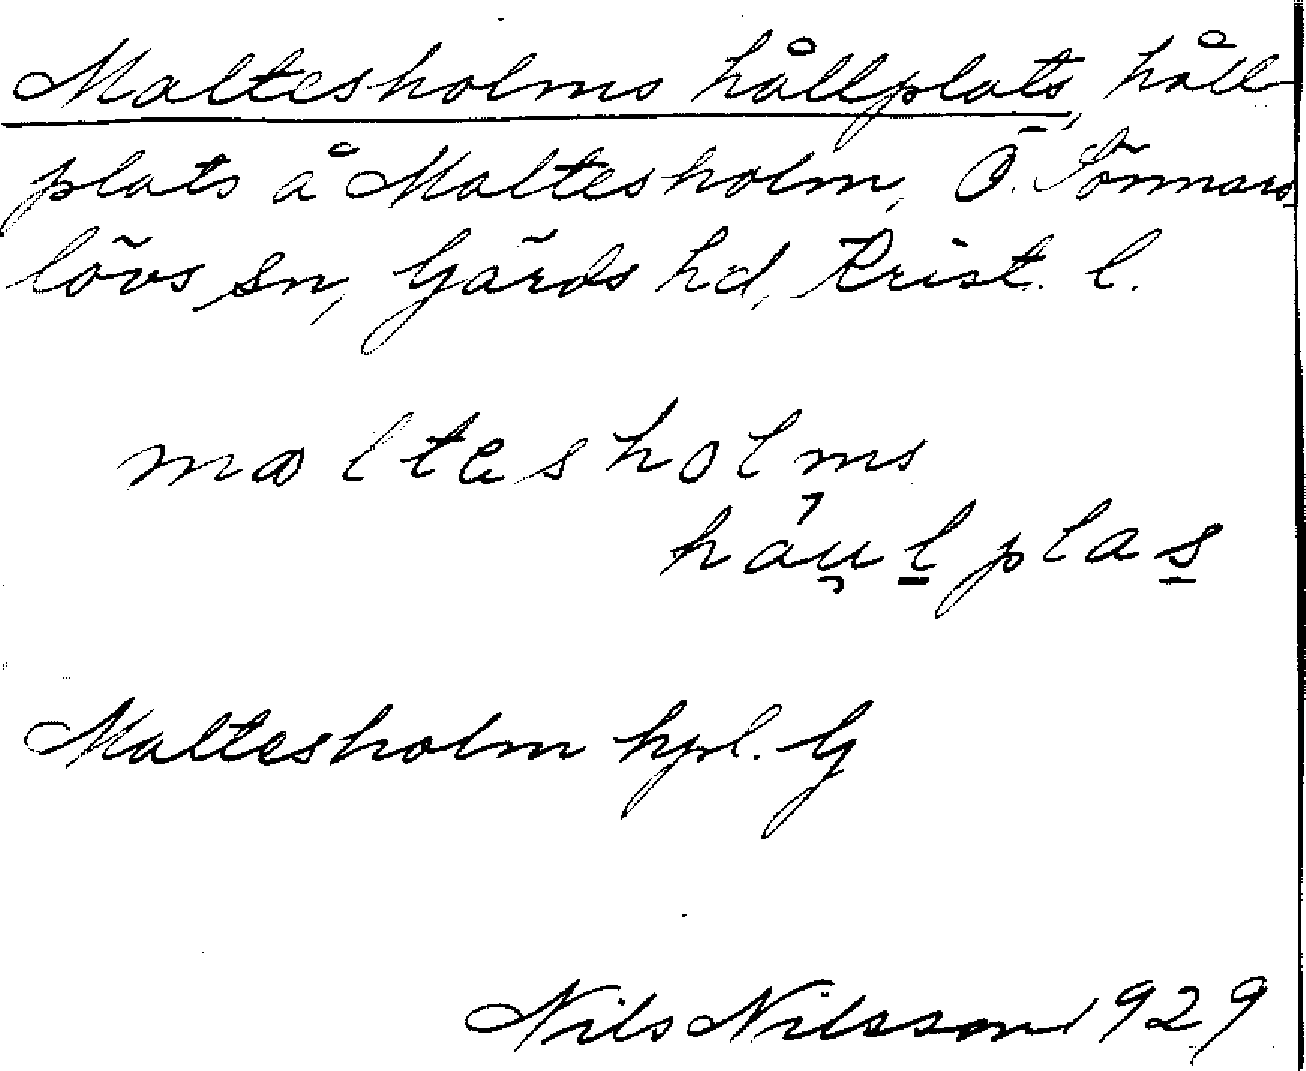 Maltesholms hållplats, håll-
plats å Maltesholm, Ö. Sönnars-
lövs sn, Gärds hd, Krist. l.
maltesholms
håulplas
Maltesholm hpl. G
Nils Nilsson 1929